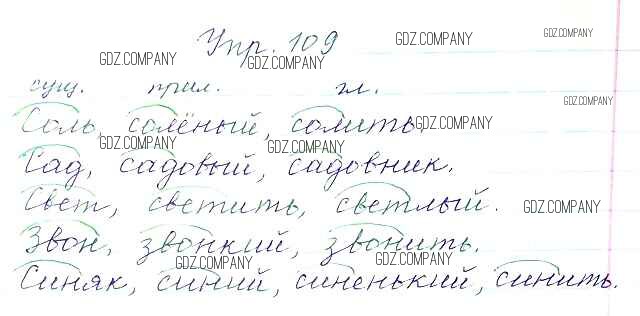 Упр. 109
сущ. прил. гл.
Соль, солёный, солить
Сад, садовый, садовник.
Свет, светить, светлый.
Звон, звонкий, звонить.
Синяк, синий, синенький, синить.
GDZ.COMPANY
GDZ.COMPANY
GDZ.COMPANY
GDZ.COMPANY
GDZ.COMPANY
GDZ.COMPANY
GDZ.COMPANY
GDZ.COMPANY
GDZ.COMPANY
GDZ.COMPANY
GDZ.COMPANY